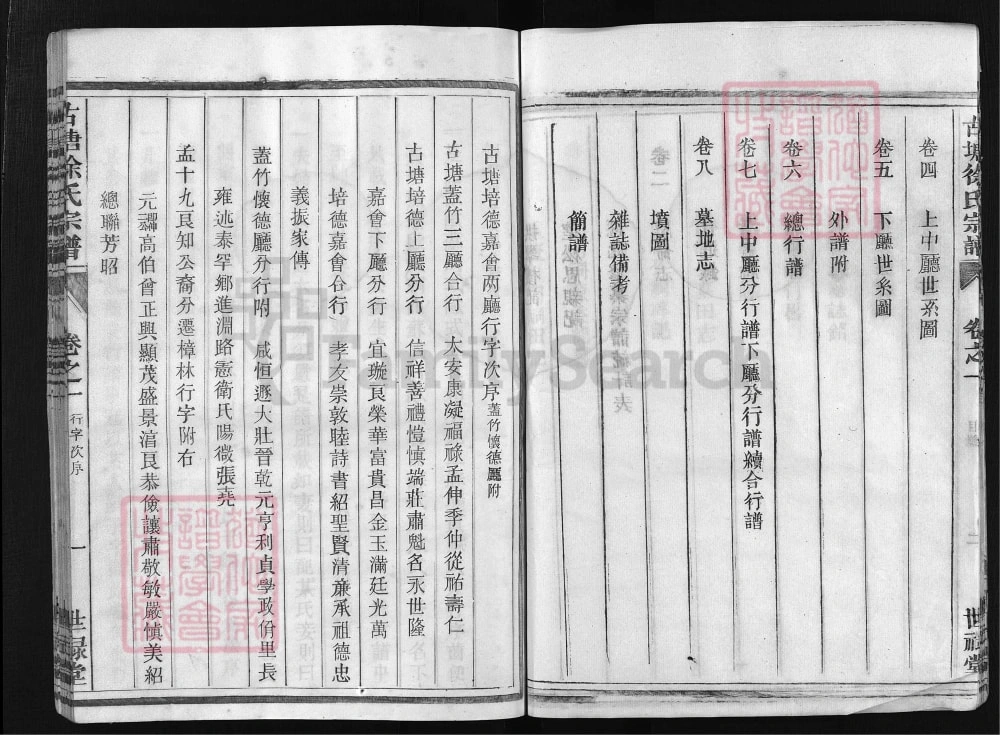 古塘徐氏宗譜
卷之一
世祿堂
卷四　上中廳世系圖
卷五　下廳世系圖
外譜附
卷六　總行譜
卷七　上中廳分行譜下廳分行譜續合行譜
卷八　墓地志
墳圖
雜誌備考
簡譜
古塘培德嘉會兩廳行字次序蓋竹懷德廳附
古塘蓋竹三廳合行　太安康凝福祿孟伸季仲從祐壽仁
古塘培德上廳分行　信祥善禮愷慎端莊肅魁名永世隆
嘉會下廳分行　宜璇良榮華富貴昌金玉滿廷光萬
培德嘉會合行　孝友崇敦睦詩書紹聖賢清廉承祖德忠
義振家傳
蓋竹懷德廳分行附　咸恒遯大壯晉乾元亨利貞學政脩里長
雍述泰罕鄉進淵路憲衛氏陽徵張堯
孟十九良知公裔分遷樟林行字附右
元禪高伯曾正興顯茂盛景涫良恭儉讓肅敬敏嚴慎美紹
總聯芳昭
古塘徐氏宗譜
卷之一
行字次序
一
世祿堂
FamilySearch